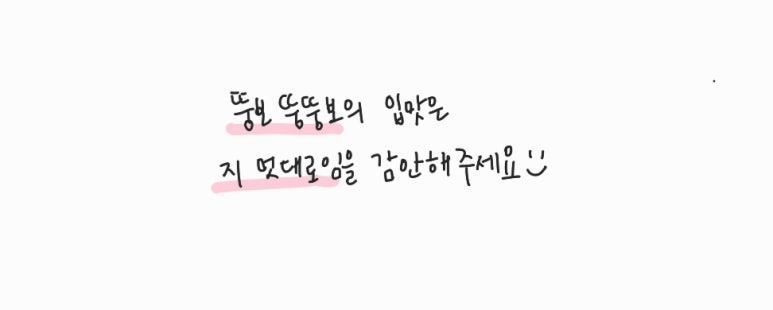 뚱보 뚱뚱보의 입맛은
지 멋대로임을 감안해주세요